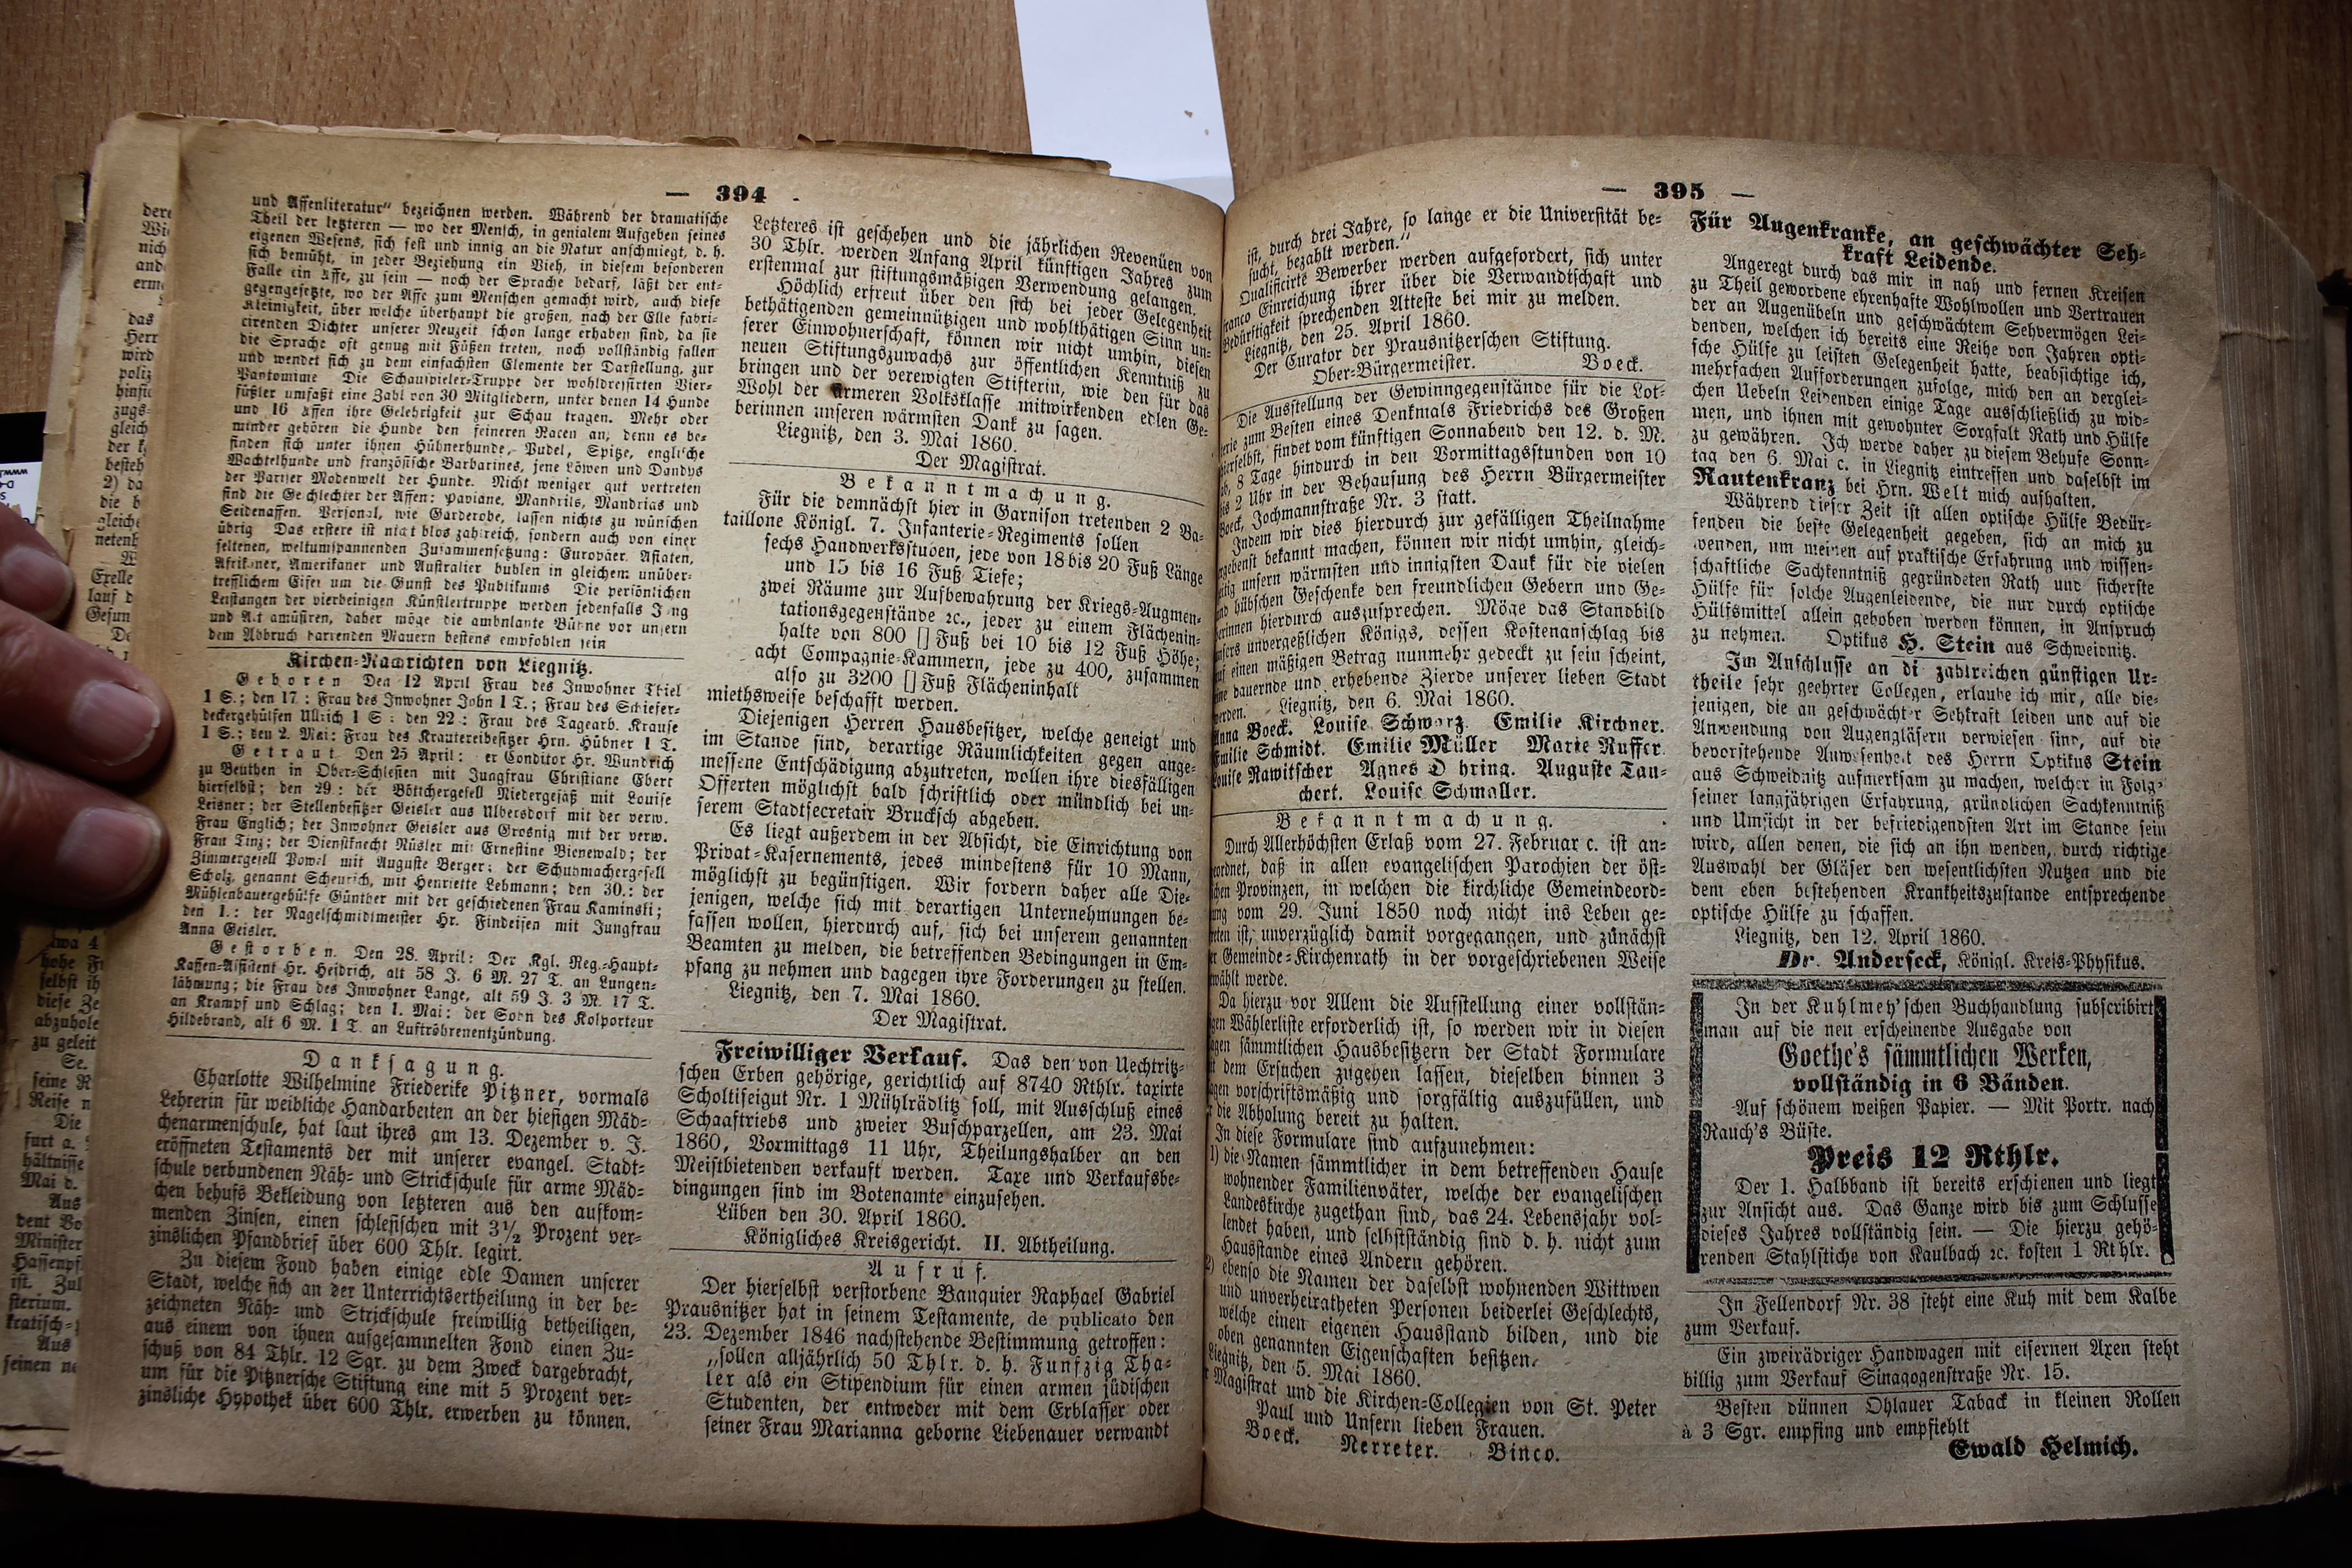 — 394 -
und Affenliteratur" bezeichnen werden. Während der dramatische
Theil der letzteren — wo der Mensch, in genialem Aufgeben seines
eigenen Wesens, sich fest und innig an die Natur anschmiegt, d. h.
sich bemüht, in jeder Beziehung ein Vieh, in diesem besonderen
Falle ein Affe, zu sein — noch der Sprache bedarf, läßt der ent-
gegengesetzte, wo der Affe zum Menschen gemacht wird, auch diese
Kleinigkeit, über welche überhaupt die großen, nach der Elle fabri-
cirenden Dichter unserer Neuzeit schon lange erhaben sind, da sie
die Sprache oft genug mit Füßen treten, noch vollständig fallen
und wendet sich zu dem einfachsten Elemente der Darstellung, zur
Pantomime Die Schauspieler-Truppe der wohldressirten Vier-
füßler umfaßt eine Zahl von 30 Mitgliedern, unter denen 14 Hunde
und 16 Affen ihre Gelehrigkeit zur Schau tragen. Mehr oder
minder gehören die Hunde den feineren Racen an, denn es be-
finden sich unter ihnen Hühnerhunde, Pudel, Spitze, englische
Wachtelhunde und französische Barbarines, jene Löwen und Dandys
der Pariser Modenwelt der Hunde. Nicht weniger gut vertreten
sind die Geschlechter der Affen: Paviane, Mandrils, Mandrias und
Seidenaffen. Personal, wie Garderobe, lassen nichts zu wünschen
übrig Das erstere ist nicht blos zahlreich, sondern auch von einer
seltenen, weltumspannenden Zusammensetzung: Europäer, Asiaten,
Afrikaner, Amerikaner und Australier buhlen in gleichem unüber-
trefflichem Eifer um die Gunst des Publikums Die persönlichen
Leistungen der vierbeinigen Künstlertruppe werden jedenfalls Jung
und Alt amüsiren, daher möge die ambulante Bühne vor unsern
dem Abbruch harrenden Mauern bestens empfohlen sein
Kirchen-Nachrichten von Liegnitz.
Geboren Den 12 April Frau des Inwohner Thiel
1 S.; den 17: Frau des Inwohner John 1 T.; Frau des Schiefer-
deckergehülfen Ullrich 1 S: den 22: Frau des Tagearb. Krause
1 S.; den 2. Mai: Frau des Kräutereibesitzer Hrn. Hübner 1 T.
Getraut Den 25 April: er Conditor Hr. Wundrich
zu Beuthen in Ober-Schlesien mit Jungfrau Christiane Ebert
hierselbst; den 29: der Böttchergesell Niedergesäß mit Louise
Leisner; der Stellenbesitzer Geisler aus Ulbersdorf mit der verw.
Frau Englich; der Inwohner Geisler aus Grosnig mit der verw.
Frau Tinz; der Dienstknecht Rüsler mit Ernestine Bienewald; der
Zimmergesell Powel mit Auguste Berger; der Schuhmachergesell
Scholz, genannt Scheurich, mit Henriette Lehmann; den 30.: der
Mühlenbauergehülfe Günther mit der geschiedenen Frau Kaminski;
den 1.: der Nagelschmidtmeister Hr. Findeisen mit Jungfrau
Anna Geisler.
Gestorben. Den 28. April: Der Kgl. Reg.-Haupt-
Kassen-Assistent Hr. Heidrich, alt 58 J. 6 M. 27 T. an Lungen-
lähmung; die Frau des Inwohner Lange, alt 59 J. 3 M. 17 T.
an Krampf und Schlag; den 1. Mai: der Sohn des Kolporteur
Hildebrand, alt 6 M. 1 T. an Luftröhrenentzündung.
Danksagung.
Charlotte Wilhelmine Friederike Pitzner, vormals
Lehrerin für weibliche Handarbeiten an der hiesigen Mäd-
chenarmenschule, hat laut ihres am 13. Dezember v. J.
eröffneten Testaments der mit unserer evangel. Stadt-
schule verbundenen Näh- und Strickschule für arme Mäd-
chen behufs Bekleidung von letzteren aus den aufkom-
menden Zinsen, einen schlesischen mit 3½ Prozent ver-
zinslichen Pfandbrief über 600 Thlr. legirt.
Zu diesem Fond haben einige edle Damen unserer
Stadt, welche sich an der Unterrichtsertheilung in der be-
zeichneten Näh- und Strickschule freiwillig betheiligen,
aus einem von ihnen aufgesammelten Fond einen Zu-
schuß von 84 Thlr. 12 Sgr. zu dem Zweck dargebracht,
um für die Pitznersche Stiftung eine mit 5 Prozent ver-
zinsliche Hypothek über 600 Thlr. erwerben zu können.
Letzteres ist geschehen und die jährlichen Revenüen von
30 Thlr. werden Anfang April künftigen Jahres zum
erstenmal zur stiftungsmäßigen Verwendung gelangen.
Höchlich erfreut über den sich bei jeder Gelegenheit
bethätigenden gemeinnützigen und wohlthätigen Sinn un-
serer Einwohnerschaft, können wir nicht umhin, diesen
neuen Stiftungszuwachs zur öffentlichen Kenntniß zu
bringen und der verewigten Stifterin, wie den für das
Wohl der ärmeren Volksklasse mitwirkenden edlen Ge-
berinnen unseren wärmsten Dank zu sagen.
Liegnitz, den 3. Mai 1860.
Der Magistrat.
Bekanntmachung.
Für die demnächst hier in Garnison tretenden 2 Ba-
taillone Königl. 7. Infanterie-Regiments sollen
sechs Handwerksstuben, jede von 18 bis 20 Fuß Länge
und 15 bis 16 Fuß Tiefe;
zwei Räume zur Aufbewahrung der Kriegs-Augmen-
tationsgegenstände ꝛc., jeder zu einem Flächenin-
halte von 800 [] Fuß bei 10 bis 12 Fuß Höhe;
acht Compagnie-Kammern, jede zu 400, zusammen
also zu 3200 [] Fuß Flächeninhalt
miethsweise beschafft werden.
Diejenigen Herren Hausbesitzer, welche geneigt und
im Stande sind, derartige Räumlichkeiten gegen ange-
messene Entschädigung abzutreten, wollen ihre diesfälligen
Offerten möglichst bald schriftlich oder mündlich bei un-
serem Stadtsecretair Brucksch abgeben.
Es liegt außerdem in der Absicht, die Einrichtung von
Privat-Kasernements, jedes mindestens für 10 Mann,
möglichst zu begünstigen. Wir fordern daher alle Die-
jenigen, welche sich mit derartigen Unternehmungen be-
fassen wollen, hierdurch auf, sich bei unserem genannten
Beamten zu melden, die betreffenden Bedingungen in Em-
pfang zu nehmen und dagegen ihre Forderungen zu stellen.
Liegnitz, den 7. Mai 1860.
Der Magistrat.
Freiwilliger Verkauf. Das den von Uechtritz-
schen Erben gehörige, gerichtlich auf 8740 Rthlr. taxirte
Scholtiseigut Nr. 1 Mühlrädlitz soll, mit Ausschluß eines
Schaaftriebs und zweier Buschparzellen, am 23. Mai
1860, Vormittags 11 Uhr, Theilungshalber an den
Meistbietenden verkauft werden. Taxe und Verkaufsbe-
dingungen sind im Botenamte einzusehen.
Lüben den 30. April 1860.
Königliches Kreisgericht. II. Abtheilung.
Aufruf.
Der hierselbst verstorbene Banquier Raphael Gabriel
Prausnitzer hat in seinem Testamente, de publicato den
23. Dezember 1846 nachstehende Bestimmung getroffen:
„sollen alljährlich 50 Thlr. d. h. Funfzig Tha-
ler als ein Stipendium für einen armen jüdischen
Studenten, der entweder mit dem Erblasser oder
seiner Frau Marianna geborne Liebenauer verwandt
— 395 —
ist, durch drei Jahre, so lange er die Universität be-
sucht, bezahlt werden."
Qualificirte Bewerber werden aufgefordert, sich unter
franco Einreichung ihrer über die Verwandtschaft und
Bedürftigkeit sprechenden Atteste bei mir zu melden.
Liegnitz, den 25. April 1860.
Der Curator der Prausnitzerschen Stiftung.
Ober-Bürgermeister. Boeck.
Die Ausstellung der Gewinngegenstände für die Lot-
terie zum Besten eines Denkmals Friedrichs des Großen
hierselbst, findet vom künftigen Sonnabend den 12. d. M.
ab, 8 Tage hindurch in den Vormittagsstunden von 10
bis 2 Uhr in der Behausung des Herrn Bürgermeister
Boeck, Jochmannstraße Nr. 3 statt.
Indem wir dies hierdurch zur gefälligen Theilnahme
ergebenst bekannt machen, können wir nicht umhin, gleich-
zeitig unsern wärmsten und innigsten Dank für die vielen
und hübschen Geschenke den freundlichen Gebern und Ge-
berinnen hierdurch auszusprechen. Möge das Standbild
unsers unvergeßlichen Königs, dessen Kostenanschlag bis
auf einen mäßigen Betrag nunmehr gedeckt zu sein scheint,
eine dauernde und erhebende Zierde unserer lieben Stadt
werden. Liegnitz, den 6. Mai 1860.
Anna Boeck. Louise Schwarz. Emilie Kirchner.
Emilie Schmidt. Emilie Müller Marie Ruffer.
Louise Rawitscher Agnes D hring. Auguste Tau-
chert. Louise Schmaller.
Bekanntmachung.
Durch Allerhöchsten Erlaß vom 27. Februar c. ist an-
geordnet, daß in allen evangelischen Parochien der öst-
lichen Provinzen, in welchen die kirchliche Gemeindeord-
nung vom 29. Juni 1850 noch nicht ins Leben ge-
treten ist, unverzüglich damit vorgegangen, und zunächst
der Gemeinde-Kirchenrath in der vorgeschriebenen Weise
gewählt werde.
Da hierzu vor Allem die Aufstellung einer vollstän-
digen Wählerliste erforderlich ist, so werden wir in diesen
Tagen sämmtlichen Hausbesitzern der Stadt Formulare
mit dem Ersuchen zugehen lassen, dieselben binnen 3
Tagen vorschriftsmäßig und sorgfältig auszufüllen, und
für die Abholung bereit zu halten.
In diese Formulare sind aufzunehmen:
1) die Namen sämmtlicher in dem betreffenden Hause
wohnender Familienväter, welche der evangelischen
Landeskirche zugethan sind, das 24. Lebensjahr vol-
lendet haben, und selbstständig sind d. h. nicht zum
Hausstande eines Andern gehören.
2) ebenso die Namen der daselbst wohnenden Wittwen
und unverheiratheten Personen beiderlei Geschlechts,
welche einen eigenen Hausstand bilden, und die
oben genannten Eigenschaften besitzen.
Liegnitz, den 5. Mai 1860.
Der Magistrat und die Kirchen-Collegien von St. Peter
Paul und Unsern lieben Frauen.
Boeck. Nerreter. Binco.
Für Augenkranke, an geschwächter Seh-
kraft Leidende.
Angeregt durch das mir in nah und fernen Kreisen
zu Theil gewordene ehrenhafte Wohlwollen und Vertrauen
der an Augenübeln und geschwächtem Sehvermögen Lei-
denden, welchen ich bereits eine Reihe von Jahren opti-
sche Hülfe zu leisten Gelegenheit hatte, beabsichtige ich,
mehrfachen Aufforderungen zufolge, mich den an derglei-
chen Uebeln Leidenden einige Tage ausschließlich zu wid-
men, und ihnen mit gewohnter Sorgfalt Rath und Hülfe
zu gewähren. Ich werde daher zu diesem Behufe Sonn-
tag den 6. Mai c. in Liegnitz eintreffen und daselbst im
Rautenkranz bei Hrn. Welt mich aufhalten.
Während dieser Zeit ist allen optische Hülfe Bedür-
fenden die beste Gelegenheit gegeben, sich an mich zu
wenden, um meinen auf praktische Erfahrung und wissen-
schaftliche Sachkenntniß gegründeten Rath und sicherste
Hülfe für solche Augenleidende, die nur durch optische
Hülfsmittel allein gehoben werden können, in Anspruch
zu nehmen. Optikus H. Stein aus Schweidnitz.
Im Anschlusse an di zahlreichen günstigen Ur-
theile sehr geehrter Collegen, erlaube ich mir, alle die-
jenigen, die an geschwächter Sehkraft leiden und auf die
Anwendung von Augengläsern verwiesen sind, auf die
bevorstehende Anwesenheit des Herrn Optikus Stein
aus Schweidnitz aufmerksam zu machen, welcher in Folge
seiner langjährigen Erfahrung, gründlichen Sachkenntniß
und Umsicht in der befriedigendsten Art im Stande sein
wird, allen denen, die sich an ihn wenden, durch richtige
Auswahl der Gläser den wesentlichsten Nutzen und die
dem eben bestehenden Krankheitszustande entsprechende
optische Hülfe zu schaffen.
Liegnitz, den 12. April 1860.
Dr. Anderseck, Königl. Kreis-Physikus.
In der Kuhlmey'schen Buchhandlung subscribirt
man auf die neu erscheinende Ausgabe von
Goethe's sämmtlichen Werken,
vollständig in 6 Bänden.
Auf schönem weißen Papier. — Mit Portr. nach
Rauch's Büste.
Preis 12 Rthlr.
Der 1. Halbband ist bereits erschienen und liegt
zur Ansicht aus. Das Ganze wird bis zum Schlusse
dieses Jahres vollständig sein. — Die hierzu gehö-
renden Stahlstiche von Kaulbach ꝛc. kosten 1 Rthlr.
In Fellendorf Nr. 38 steht eine Kuh mit dem Kalbe
zum Verkauf.
Ein zweirädriger Handwagen mit eisernen Axen steht
billig zum Verkauf Sinagogenstraße Nr. 15.
Besten dünnen Ohlauer Taback in kleinen Rollen
à 3 Sgr. empfing und empfiehlt
Ewald Helmich.